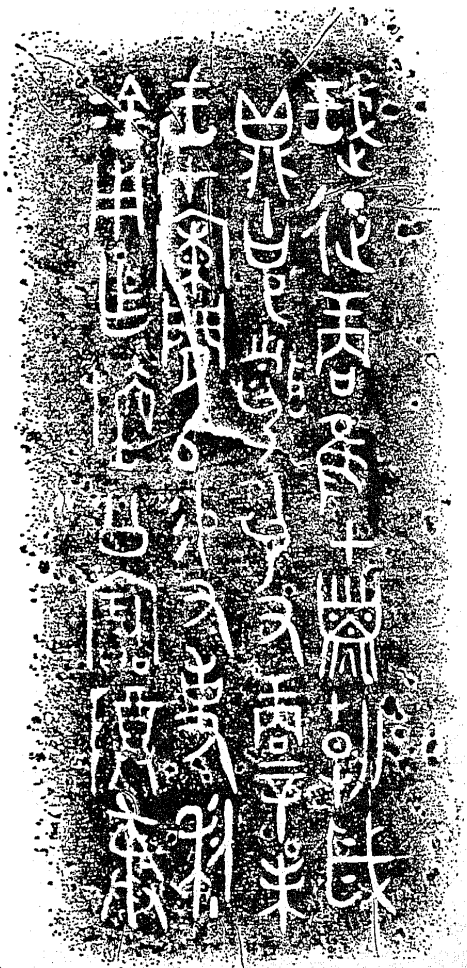 珷征商隹甲子朝歲
鼎克聞夙又商辛未
王才𠂤易又事利
金用乍旜公寶尊彝